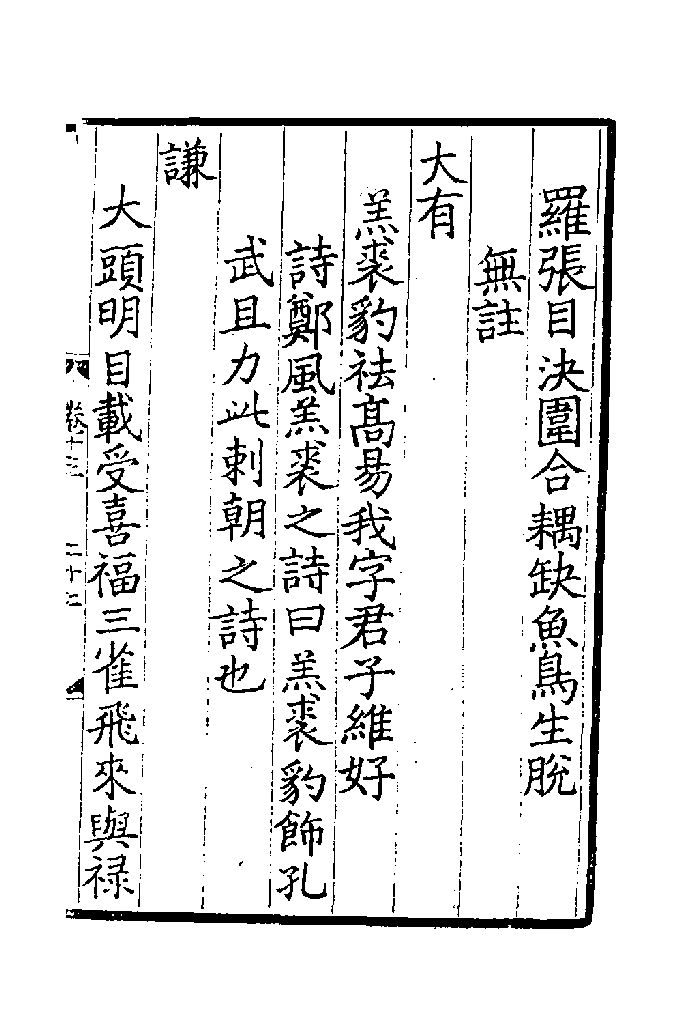 羅張目決圍合耦缺魚鳥生脫
無註
大有
羔裘豹袪髙易我字君子維好
詩鄭風羔裘之詩曰羔裘豹飾孔
武且力此刺朝之詩也
謙
大頭明目載受喜福三雀飛來與禄
卷十三